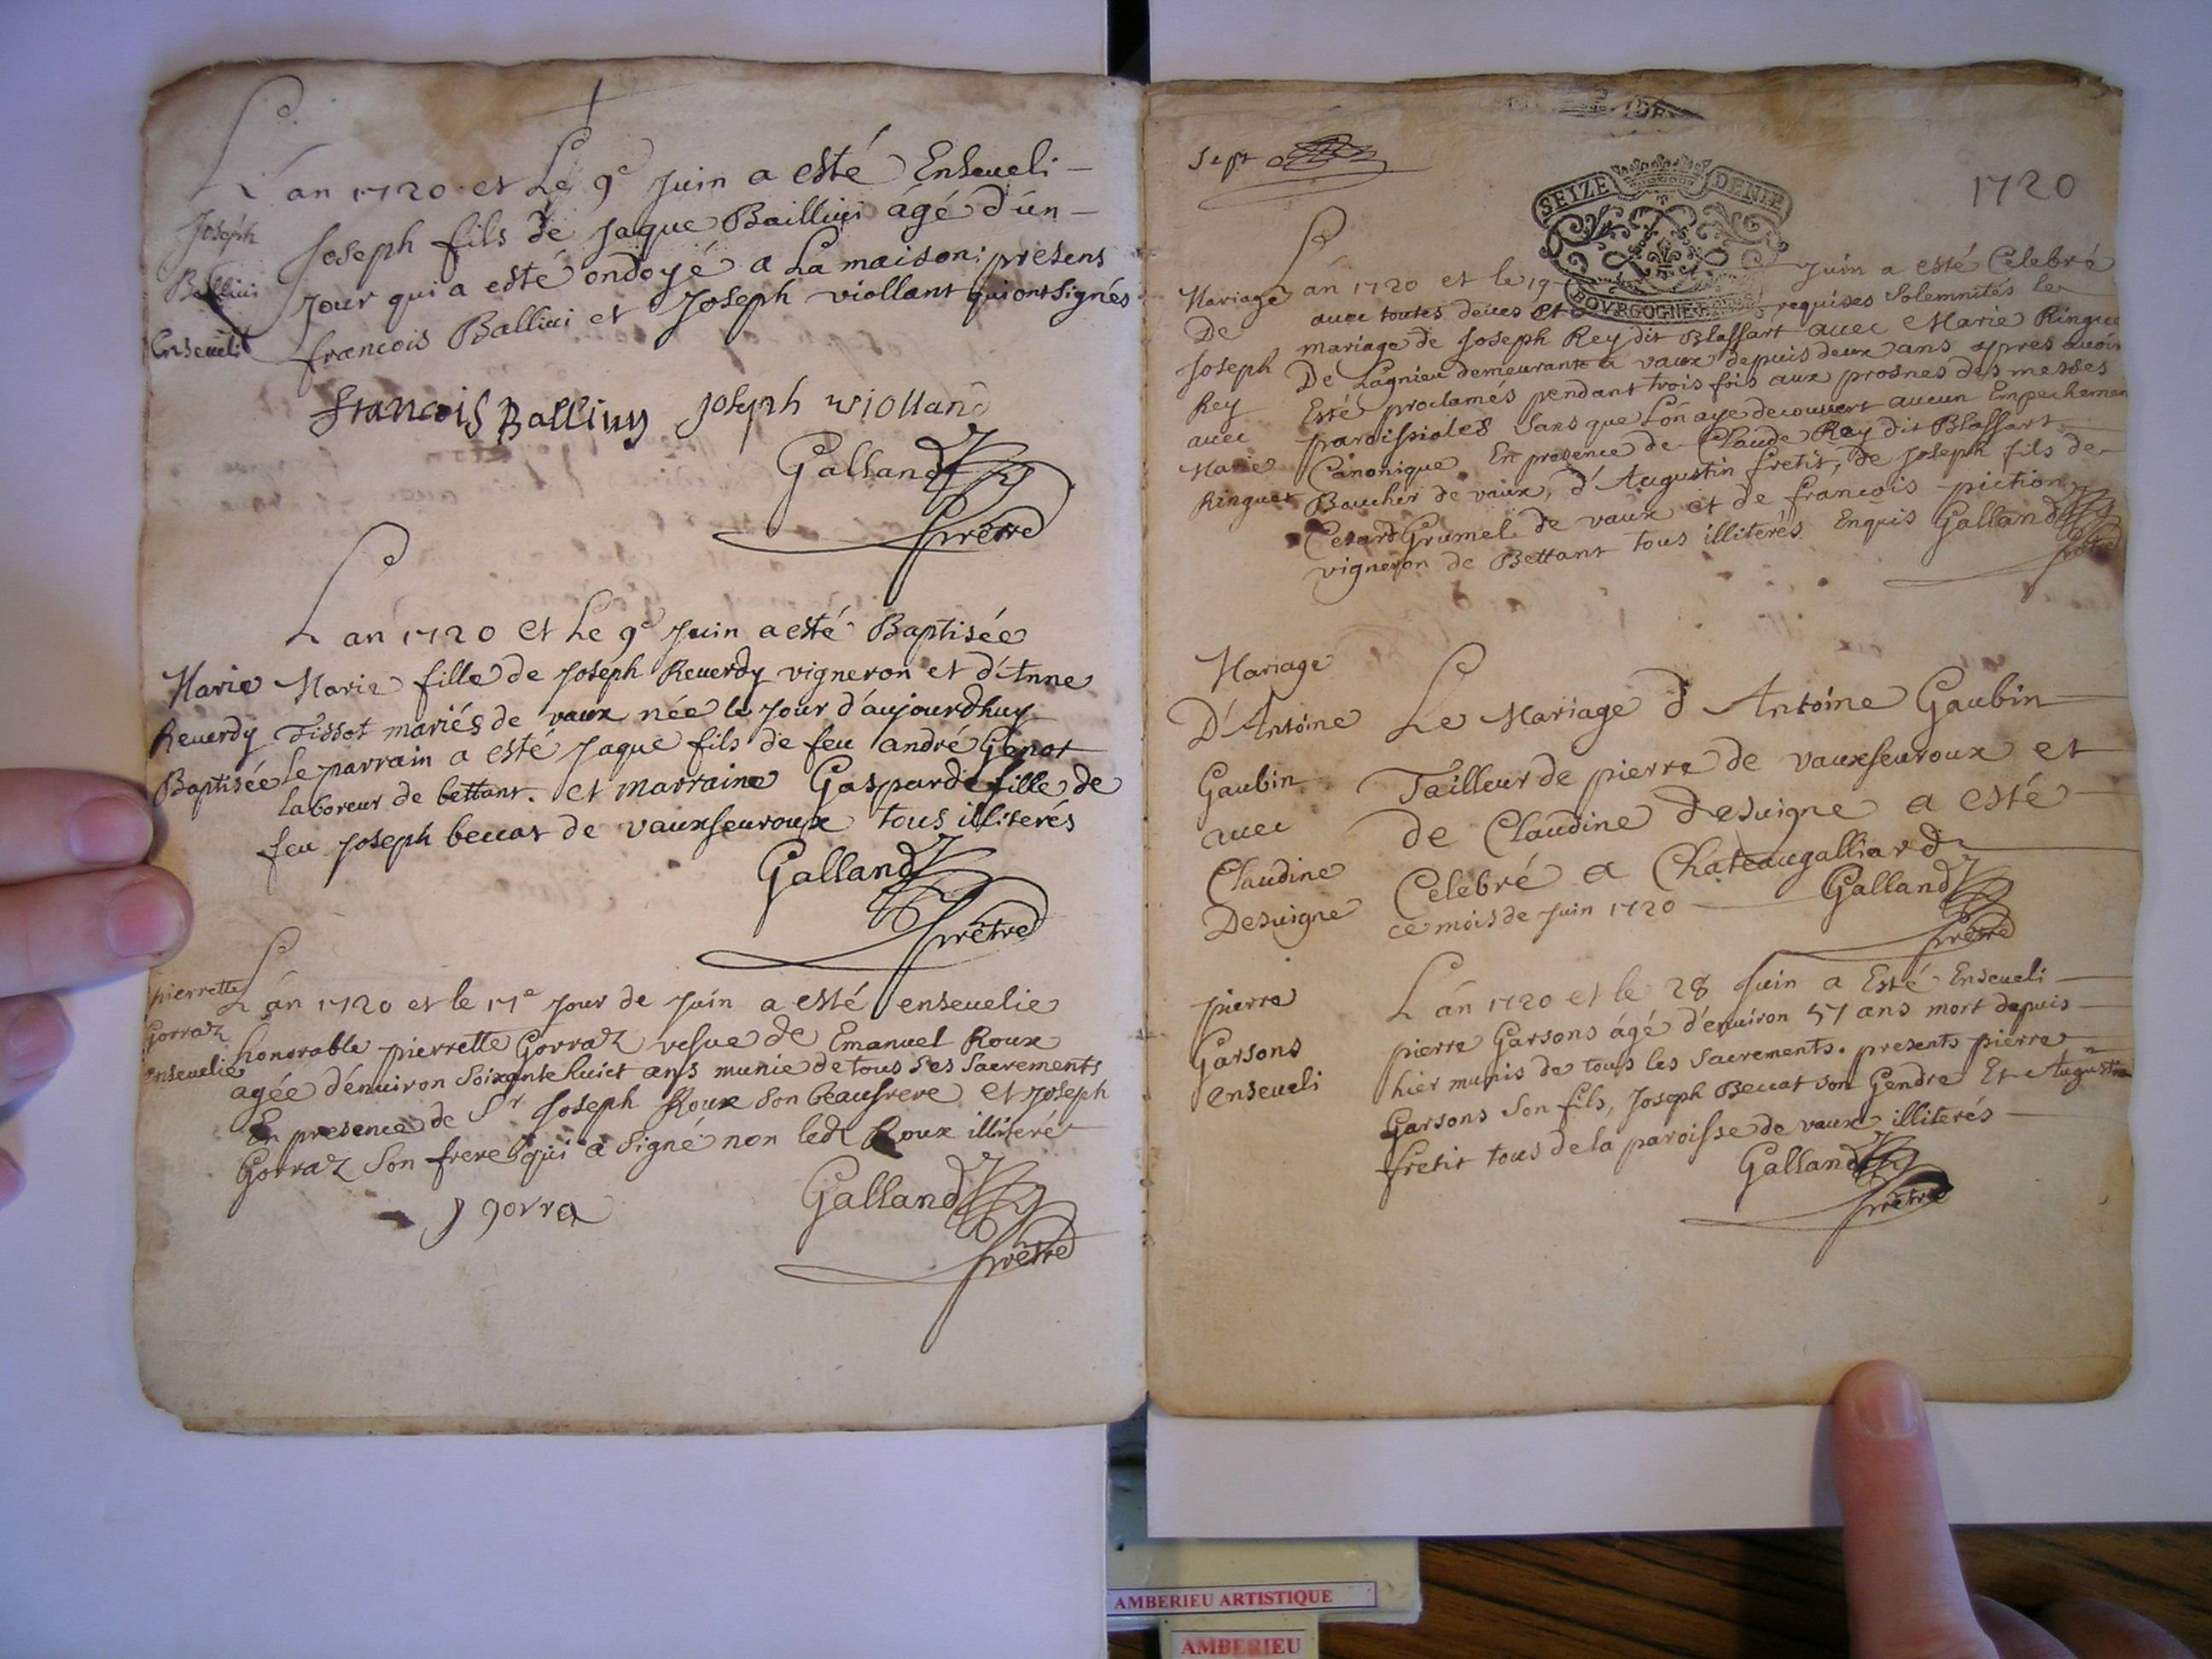 L'an 1720 et Le 9e Juin a esté Enseueli
Joseph
Joseph fils de Jaque Ballini agé d'un
Jour qui a esté ondoyé a La maison: presens
Enseueli
francois Ballini et Joseph viollant qui ont signés
francois Ballini Joseph wiolland
Galland
prêtre
L'an 1720 et Le 9e Juin a esté Baptisée
Marie Marie fille de Joseph Reuerdy vigneron et d'Anne
Reuerdy Tissot mariés de vaux née le Jour d'aujourdhuy
Baptisée le parrain a esté Jaque fils de feu andré Genot
laboreur de bettant. et marraine Gasparde fille de
feu Joseph beccat de vauxfeuroux tous illiterés
Galland
prêtre
pierrette L'an 1720 et le 17e Jour de Juin a esté enseuelie
Gorraz honorable pierrette Gorraz vefue de Emanuel Roux
enseuelie agée d'enuiron soixante huict ans munie de tous ses sacrements
En presence de Sr Joseph Roux son beaufrere et Joseph
Gorraz son frere qui a signé non ledt Roux illiteré
J gorra
Galland
prêtre
Sept
SEIZE DENIE
BOVRGOGNE
1720
L'an 1720 et le 19 Juin a esté Celebré
Mariage auec toutes deües et requises solemnités le
De mariage de Joseph Rey dit Blaffart auec Marie Ringue
Joseph De Lagnieu demeurante a vaux depuis deux ans apres auoir
Rey Esté proclamés pendant trois fois aux prosnes des messes
auec paroissiales sans que L'on aye decouuert aucun Empechemen
Marie Canonique. En presence de Claude Rey dit Blaffart
Ringuet Boucher de vaux, d'Augustin fretit, de Joseph fils de
Cesard Grumel de vaux et de francois piction
vigneron de Bettant tous illiterés Enquis Galland
prêtre
Mariage
D'Antoine Le Mariage d'Antoine Gaubin
Gaubin Tailleur de pierre de vauxfeuroux et
auec de Claudine Desuigne a esté
Claudine Celebré a Chateaugalliard
Desuigne ce mois de Juin 1720 Galland
prêtre
L'an 1720 et le 28 Juin a Esté Enseueli
pierre pierre Garsons ágé d'enuiron 57 ans mort depuis
Garsons hier munis de tous les sacrements. presents pierre
enseueli Garsons son fils, Joseph Beccat son Gendre Et Augustin
fretit tous de la paroisse de vaux illiterés
Galland
prêtre
AMBERIEU ARTISTIQUE
AMBERIEU